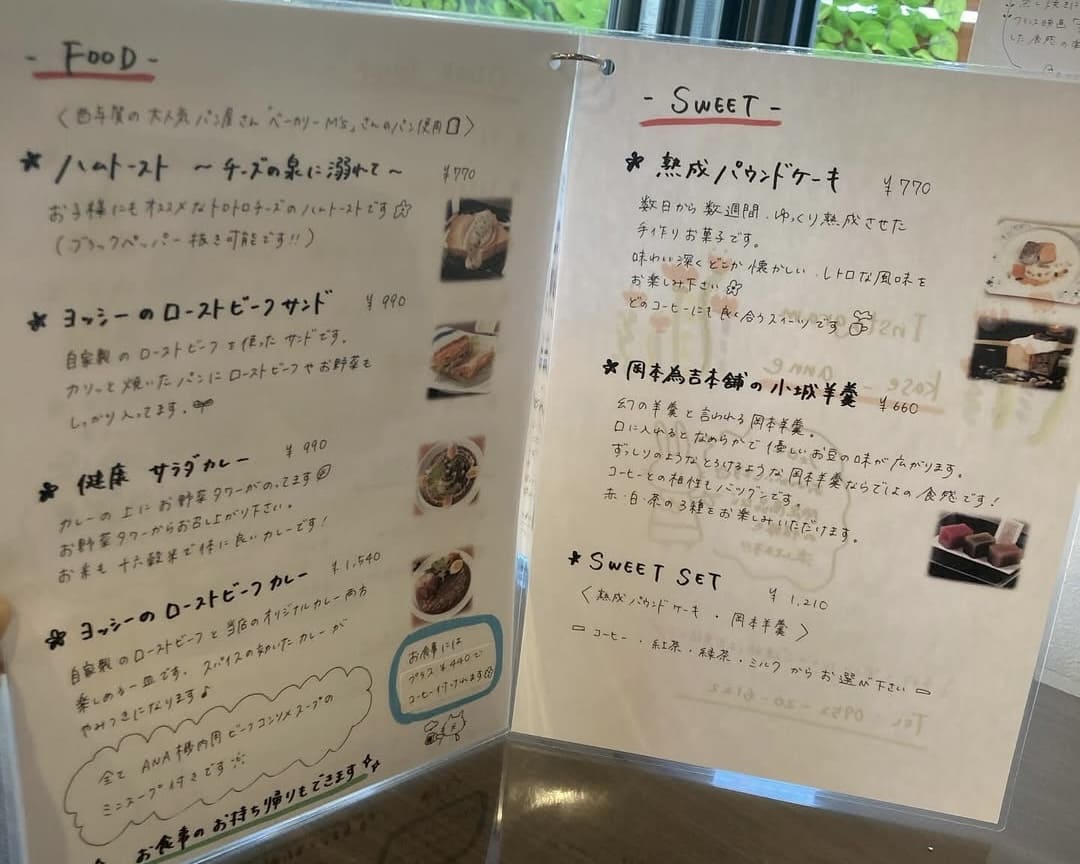 - FOOD -
〈西与賀の大人気パン屋さん「ベーカリーM's」さんのパン使用〉
* ハムトースト ～チーズの泉に溺れて～ ¥770
お子様にもオススメなトロトロチーズのハムトーストです
(ブラックペッパー抜き可能です!!)
* ヨッシーのローストビーフサンド ¥990
自家製のローストビーフを使ったサンドです。
カリッと焼いたパンにローストビーフやお野菜も
しっかり入ってます。
* 健康 サラダカレー ¥990
カレーの上にお野菜タワーがのってます
お野菜タワーからお召し上がり下さい。
お米も十六穀米で体に良いカレーです!
* ヨッシーのローストビーフカレー ¥1,540
自家製のローストビーフと当店のオリジナルカレー両方
楽しめる一皿です。スパイスの効いたカレーが
やみつきになります♪
お食事には
プラス¥440で
コーヒー付けれます
全て ANA機内用ビーフコンソメスープの
ミニスープ付きです
お食事のお持ち帰りもできます
- SWEET -
* 熟成パウンドケーキ ¥770
数日から数週間、ゆっくり熟成させた
手作りお菓子です。
味わい深くどこか懐かしい、レトロな風味を
お楽しみ下さい
どのコーヒーにも良く合うスイーツです
* 岡本為吉本舗の小城羊羹 ¥660
幻の羊羹と言われる岡本羊羹。
口に入れるとなめらかで優しいお豆の味が広がります。
ずっしりのようなとろけるような岡本羊羹ならではの食感です!
コーヒーとの相性もバツグンです。
赤・白・茶の3種をお楽しみいただけます。
* SWEET SET ¥1,210
〈熟成パウンドケーキ・岡本羊羹〉
コーヒー・紅茶・緑茶・ミルクからお選び下さい
Instagram
kose_anne
TEL 0952-20-6122